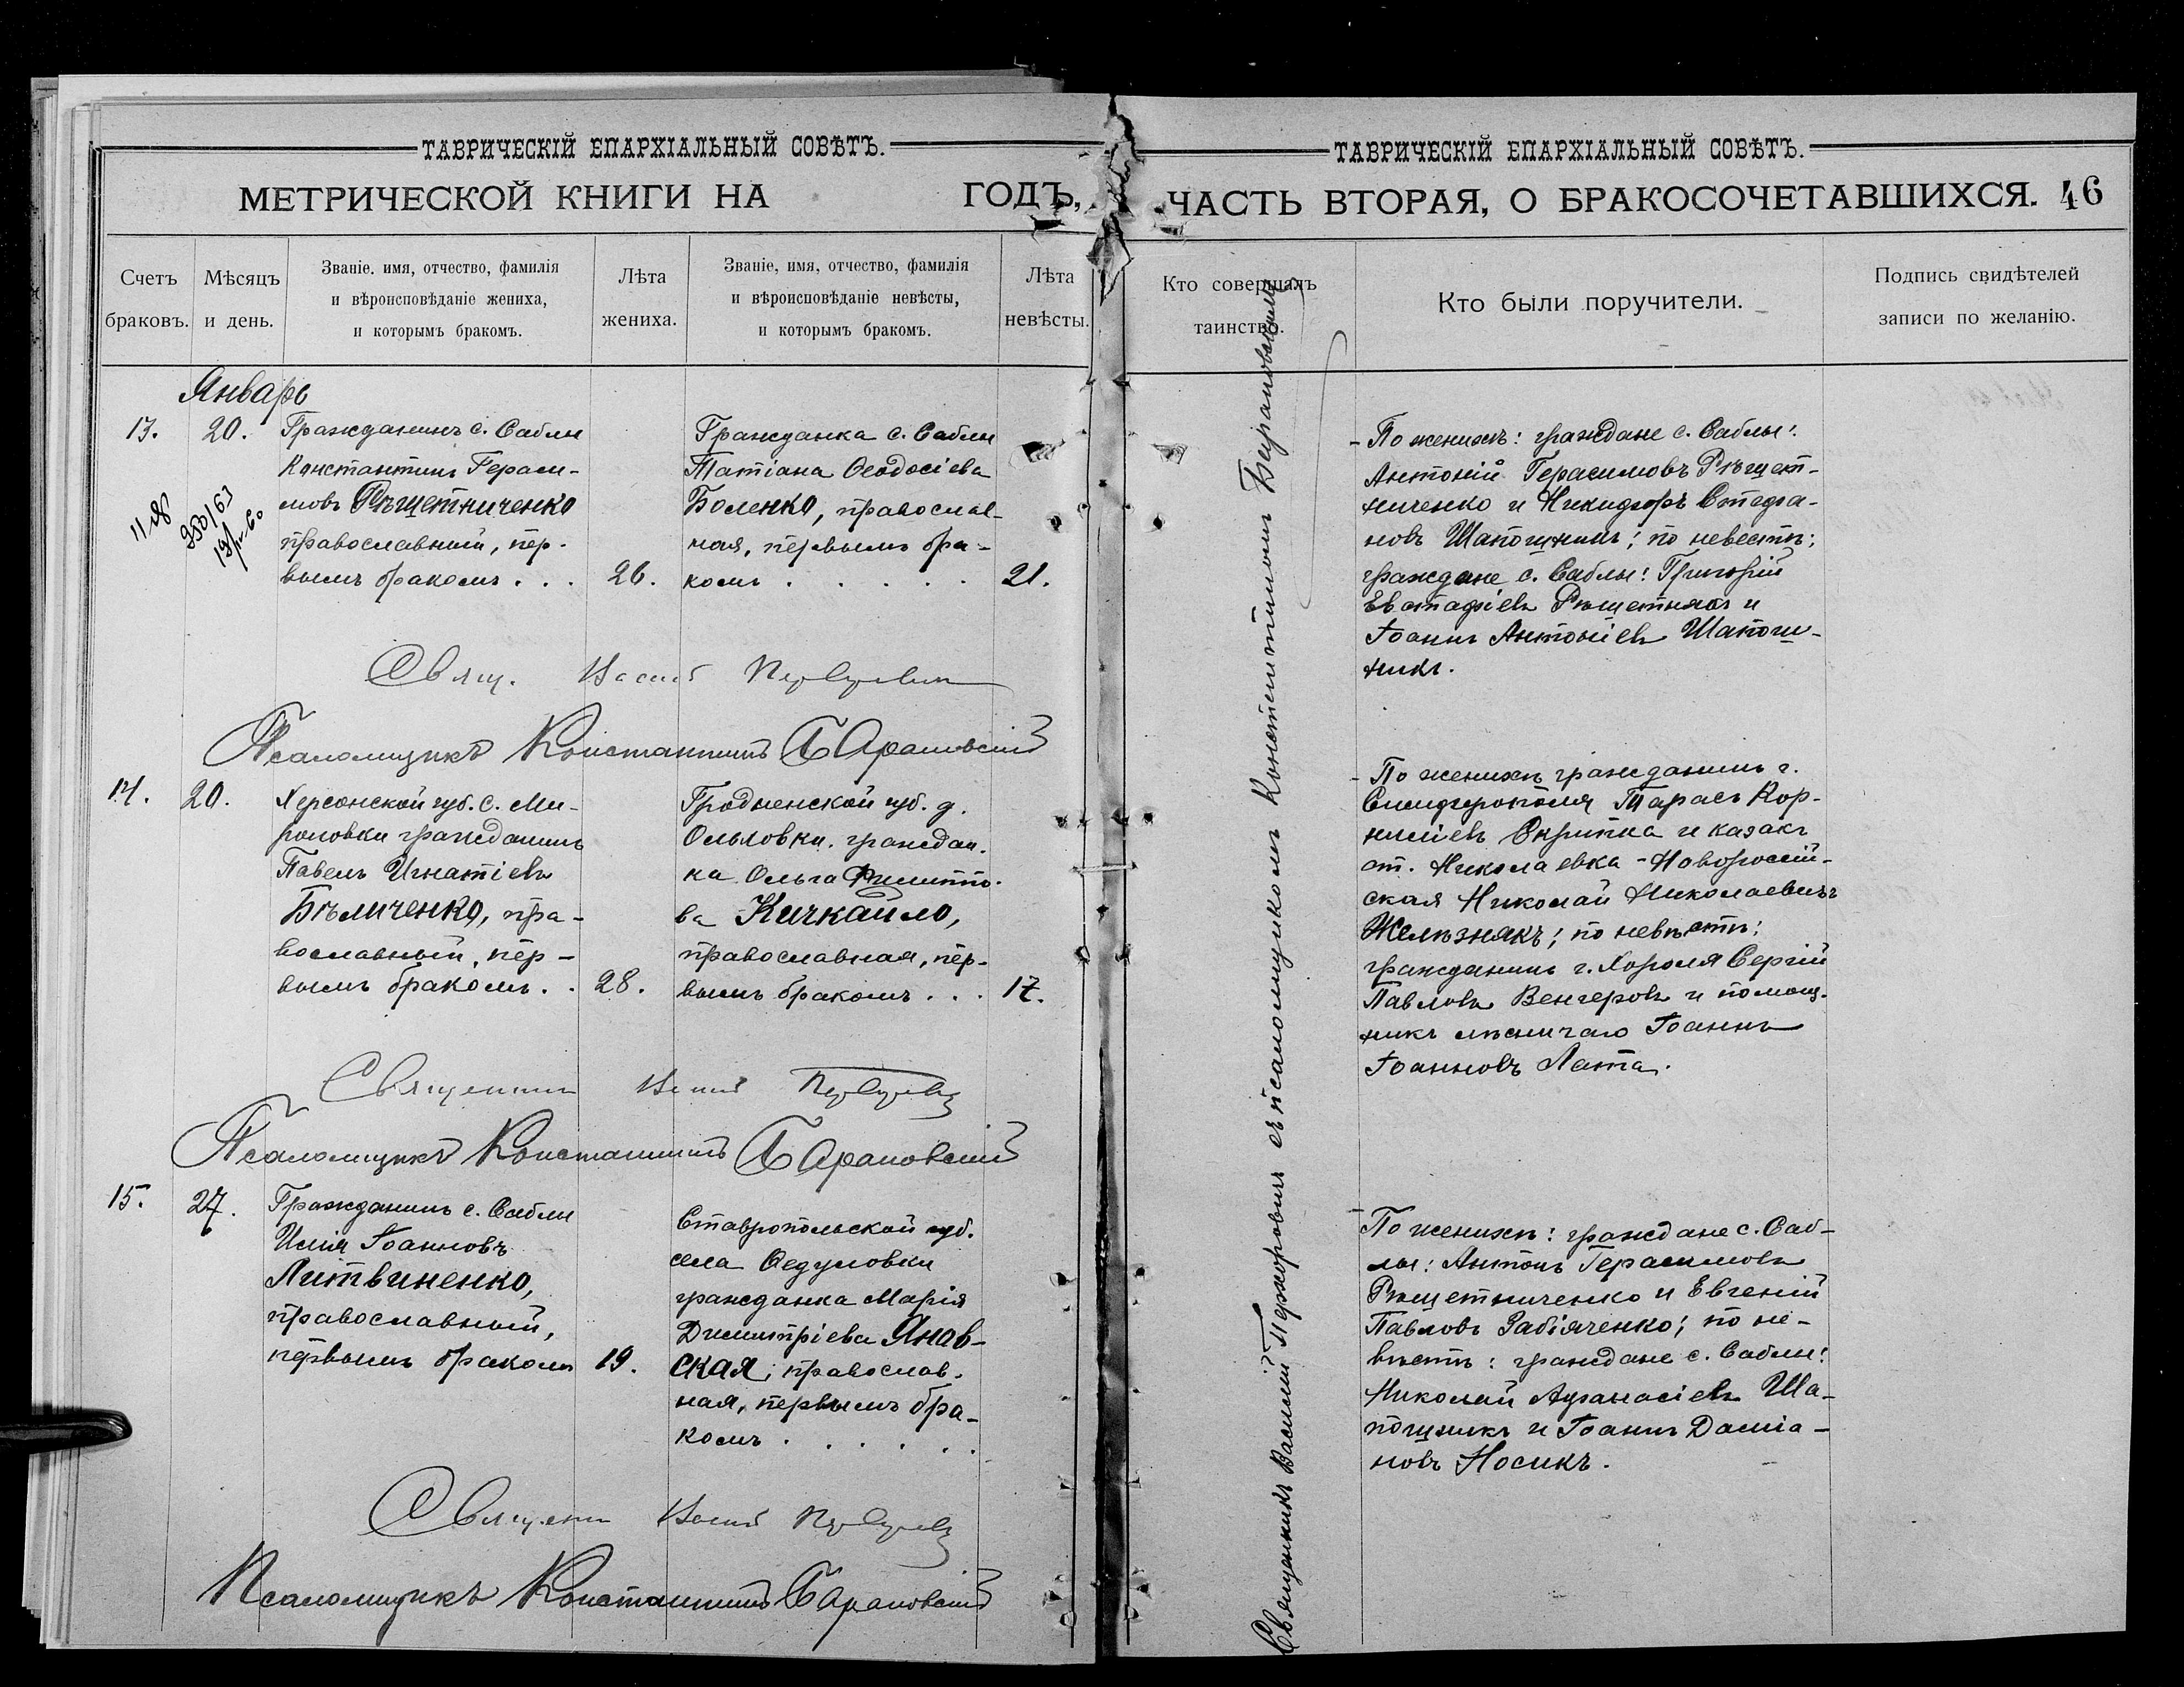 ТАВРИЧЕСКІЙ ЕПАРХІАЛЬНЫЙ СОВѢТЪ.
МЕТРИЧЕСКОЙ КНИГИ НА ГОДЪ,
Счетъ браковъ.
Мѣсяцъ и день.
Званіе, имя, отчество, фамилія
и вѣроисповѣданіе жениха,
и которымъ бракомъ.
Лѣта жениха.
Званіе, имя, отчество, фамилія
и вѣроисповѣданіе невѣсты,
и которымъ бракомъ.
Лѣта невѣсты.
Январь
13.
20.
Гражданинъ с. Саблы
Константинъ Гераси-
мовъ Рѣшетниченко
православный, пер-
вымъ бракомъ . . .
26.
Гражданка с. Саблы
Татіана Ѳеодосіева
Боленко, православ-
ная, первымъ бра-
комъ . . . . .
21.
Свящ.
Псаломщикъ Константинъ Барановскій
14.
20.
Херсонской губ. с. Ми-
роловки гражданинъ
Павелъ Игнатіевъ
Бѣличенко, пра-
вославный, пер-
вымъ бракомъ . .
28.
Гродненской губ. д.
Ольховки, граждан-
ка Ольга Филиппо-
ва Кичкайло,
православная, пер-
вымъ бракомъ . . .
17.
Священникъ
Псаломщикъ Константинъ Барановскій
15.
27.
Гражданинъ с. Саблы
Илія Іоанновъ
Литвиненко,
православный,
первымъ бракомъ
19.
Ставропольской губ.
села Ѳедуловки
гражданка Марія
Димитріева Янов-
ская, православ-
ная, первымъ бра-
комъ . . . . . .
Священ
Псаломщикъ Константинъ Барановскій
ТАВРИЧЕСКІЙ ЕПАРХІАЛЬНЫЙ СОВѢТЪ.
ЧАСТЬ ВТОРАЯ, О БРАКОСОЧЕТАВШИХСЯ. 46
Кто совершалъ таинство.
Кто были поручители.
Подпись свидѣтелей
записи по желанію.
Священникъ Василій съ псаломщикомъ Константиномъ Барановскимъ
По женихѣ: граждане с. Саблы:
Антоній Герасимовъ Рѣшет-
ниченко и Никифоръ Стефа-
новъ Шапошникъ; по невестѣ:
граждане с. Саблы: Григорій
Евстафіевъ Рѣшетнякъ и
Іоаннъ Антоніевъ Шапош-
никъ.
По женихѣ гражданинъ г.
Симферополя Тарасъ Кор-
ниліевъ Скрипка и казакъ
ст. Николаевка-Новороссій-
ская Николай Николаевичъ
Желѣзнякъ; по невѣстѣ:
гражданинъ г. Хороля Сергій
Павловъ Венгеровъ и помощ-
никъ лѣсничаго Іоаннъ
Іоанновъ Лата.
По женихѣ: граждане с. Саб-
лы: Антонъ Герасимовъ
Рѣшетниченко и Евгеній
Павловъ Забіяченко; по не-
вѣстѣ: граждане с. Саблы:
Николай Афанасіевъ Ша-
пошникъ и Іоаннъ Даміа-
новъ Носикъ.